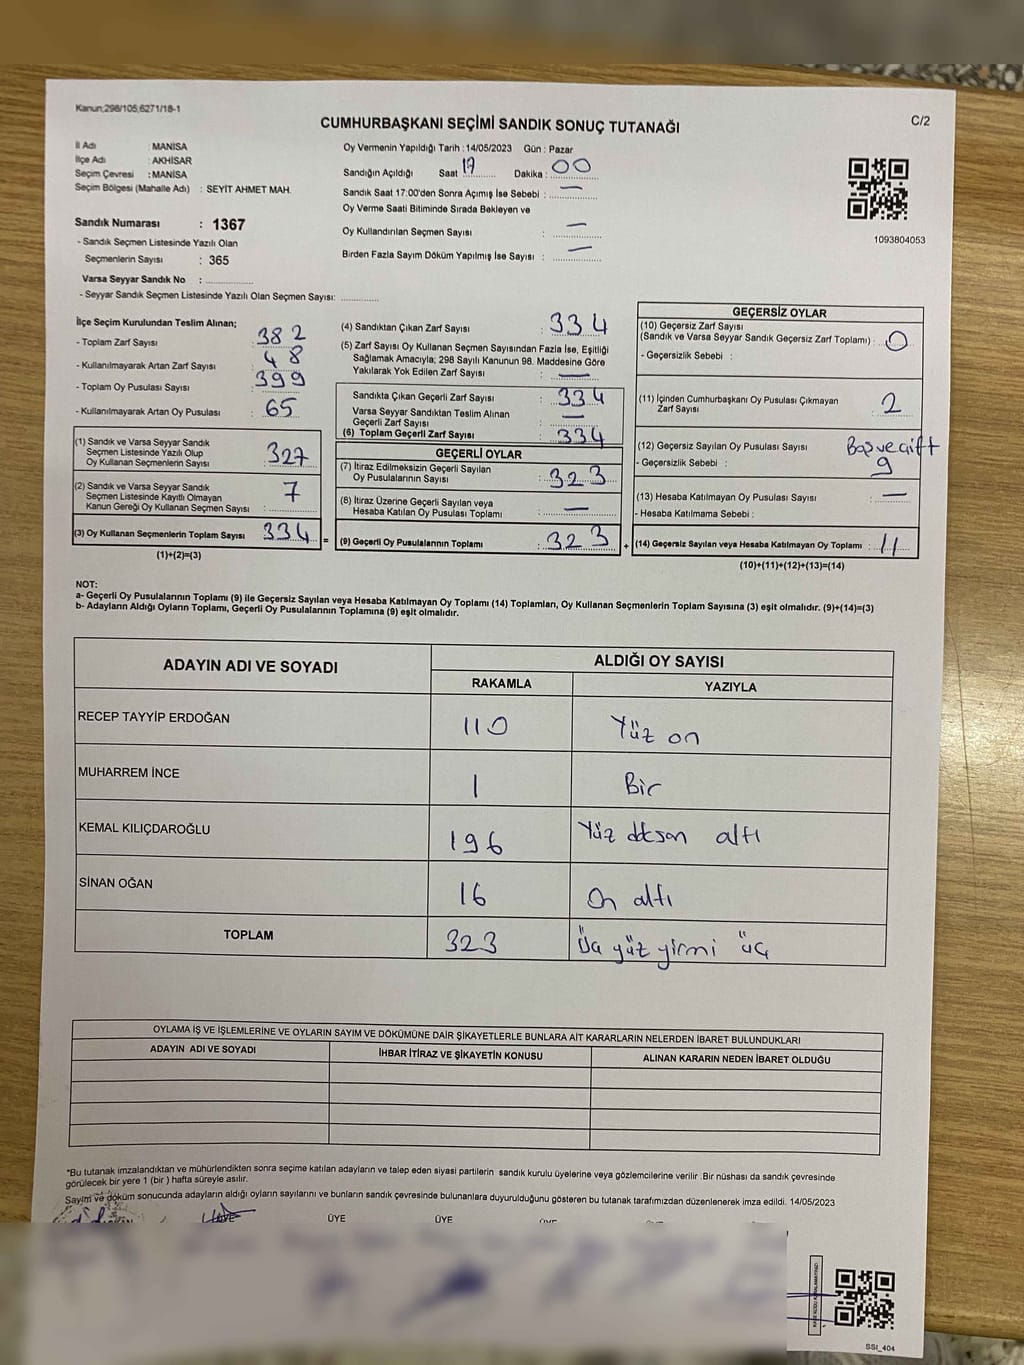 Kanun;298/105;6271/18-1
C/2
CUMHURBAŞKANI SEÇİMİ SANDIK SONUÇ TUTANAĞI
İl Adı : MANİSA
İlçe Adı : AKHİSAR
Seçim Çevresi : MANİSA
Seçim Bölgesi (Mahalle Adı) : SEYİT AHMET MAH.
Sandık Numarası : 1367
- Sandık Seçmen Listesinde Yazılı Olan
Seçmenlerin Sayısı : 365
Varsa Seyyar Sandık No :
- Seyyar Sandık Seçmen Listesinde Yazılı Olan Seçmen Sayısı:
Oy Vermenin Yapıldığı Tarih : 14/05/2023 Gün : Pazar
Sandığın Açıldığı Saat 17 Dakika : 00
Sandık Saat 17:00'den Sonra Açımış İse Sebebi : —
Oy Verme Saati Bitiminde Sırada Bekleyen ve
Oy Kullandırılan Seçmen Sayısı : —
Birden Fazla Sayım Döküm Yapılmış İse Sayısı : —
1093804053
İlçe Seçim Kurulundan Teslim Alınan;
- Toplam Zarf Sayısı : 382
- Kullanılmayarak Artan Zarf Sayısı : 48
- Toplam Oy Pusulası Sayısı : 399
- Kullanılmayarak Artan Oy Pusulası : 65
(1) Sandık ve Varsa Seyyar Sandık
Seçmen Listesinde Yazılı Olup
Oy Kullanan Seçmenlerin Sayısı : 327
(2) Sandık ve Varsa Seyyar Sandık
Seçmen Listesinde Kayıtlı Olmayan
Kanun Gereği Oy Kullanan Seçmen Sayısı : 7
(3) Oy Kullanan Seçmenlerin Toplam Sayısı : 334 =
(1)+(2)=(3)
(4) Sandıktan Çıkan Zarf Sayısı : 334
(5) Zarf Sayısı Oy Kullanan Seçmen Sayısından Fazla İse, Eşitliği
Sağlamak Amacıyla; 298 Sayılı Kanunun 98. Maddesine Göre
Yakılarak Yok Edilen Zarf Sayısı : —
Sandıkta Çıkan Geçerli Zarf Sayısı : 334
Varsa Seyyar Sandıktan Teslim Alınan
Geçerli Zarf Sayısı : —
(6) Toplam Geçerli Zarf Sayısı : 334
GEÇERLİ OYLAR
(7) İtiraz Edilmeksizin Geçerli Sayılan
Oy Pusulalarının Sayısı : 323
(8) İtiraz Üzerine Geçerli Sayılan veya
Hesaba Katılan Oy Pusulası Toplamı : —
(9) Geçerli Oy Pusulalarının Toplamı : 323 +
GEÇERSİZ OYLAR
(10) Geçersiz Zarf Sayısı
(Sandık ve Varsa Seyyar Sandık Geçersiz Zarf Toplamı) : 0
- Geçersizlik Sebebi :
(11) İçinden Cumhurbaşkanı Oy Pusulası Çıkmayan
Zarf Sayısı : 2
(12) Geçersiz Sayılan Oy Pusulası Sayısı : Boş ve çift
- Geçersizlik Sebebi : 9
(13) Hesaba Katılmayan Oy Pusulası Sayısı : —
- Hesaba Katılmama Sebebi :
(14) Geçersiz Sayılan veya Hesaba Katılmayan Oy Toplamı : 11
(10)+(11)+(12)+(13)=(14)
NOT:
a- Geçerli Oy Pusulalarının Toplamı (9) ile Geçersiz Sayılan veya Hesaba Katılmayan Oy Toplamı (14) Toplamları, Oy Kullanan Seçmenlerin Toplam Sayısına (3) eşit olmalıdır. (9)+(14)=(3)
b- Adayların Aldığı Oyların Toplamı, Geçerli Oy Pusulalarının Toplamına (9) eşit olmalıdır.
ADAYIN ADI VE SOYADI ALDIĞI OY SAYISI
RAKAMLA YAZIYLA
RECEP TAYYİP ERDOĞAN 110 Yüz on
MUHARREM İNCE 1 Bir
KEMAL KILIÇDAROĞLU 196 Yüz doksan altı
SİNAN OĞAN 16 On altı
TOPLAM 323 Üç yüz yirmi üç
OYLAMA İŞ VE İŞLEMLERİNE VE OYLARIN SAYIM VE DÖKÜMÜNE DAİR ŞİKAYETLERLE BUNLARA AİT KARARLARIN NELERDEN İBARET BULUNDUKLARI
ADAYIN ADI VE SOYADI İHBAR İTİRAZ VE ŞİKAYETİN KONUSU ALINAN KARARIN NEDEN İBARET OLDUĞU
*Bu tutanak imzalandıktan ve mühürlendikten sonra seçime katılan adayların ve talep eden siyasi partilerin sandık kurulu üyelerine veya gözlemcilerine verilir .Bir nüshası da sandık çevresinde
görülecek bir yere 1 (bir ) hafta süreyle asılır.
Sayım ve döküm sonucunda adayların aldığı oyların sayılarını ve bunların sandık çevresinde bulunanlara duyurulduğunu gösteren bu tutanak tarafımızdan düzenlenerek imza edildi. 14/05/2023
ÜYE ÜYE ÜYE
SSI_404